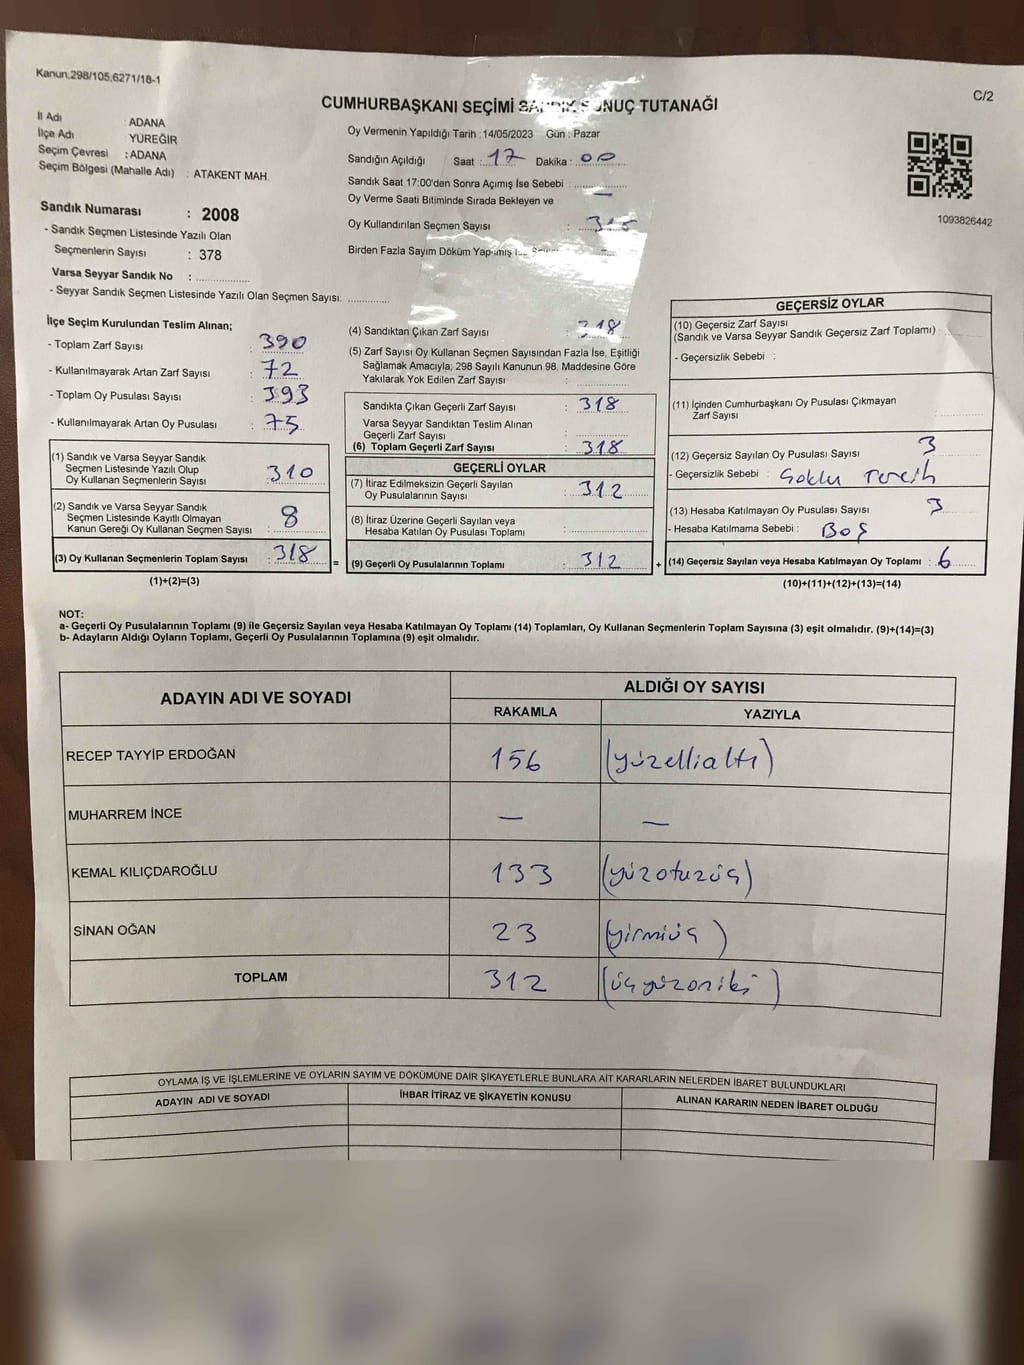 Kanun;298/105,6271/18-1
C/2
CUMHURBAŞKANI SEÇİMİ SANDIK SONUÇ TUTANAĞI
İl Adı : ADANA
İlçe Adı : YÜREĞİR
Seçim Çevresi : ADANA
Seçim Bölgesi (Mahalle Adı) : ATAKENT MAH.
Sandık Numarası : 2008
- Sandık Seçmen Listesinde Yazılı Olan
Seçmenlerin Sayısı : 378
Varsa Seyyar Sandık No :
- Seyyar Sandık Seçmen Listesinde Yazılı Olan Seçmen Sayısı:
Oy Vermenin Yapıldığı Tarih : 14/05/2023 Gün : Pazar
Sandığın Açıldığı Saat : 17 Dakika : 00
Sandık Saat 17:00'den Sonra Açımış İse Sebebi :
Oy Verme Saati Bitiminde Sırada Bekleyen ve —
Oy Kullandırılan Seçmen Sayısı :
Birden Fazla Sayım Döküm Yapılmış
1093826442
İlçe Seçim Kurulundan Teslim Alınan;
- Toplam Zarf Sayısı : 390
- Kullanılmayarak Artan Zarf Sayısı : 72
- Toplam Oy Pusulası Sayısı : 393
- Kullanılmayarak Artan Oy Pusulası : 75
(1) Sandık ve Varsa Seyyar Sandık
Seçmen Listesinde Yazılı Olup
Oy Kullanan Seçmenlerin Sayısı : 310
(2) Sandık ve Varsa Seyyar Sandık
Seçmen Listesinde Kayıtlı Olmayan
Kanun Gereği Oy Kullanan Seçmen Sayısı : 8
(3) Oy Kullanan Seçmenlerin Toplam Sayısı : 318
(1)+(2)=(3)
=
(4) Sandıktan Çıkan Zarf Sayısı : 318
(5) Zarf Sayısı Oy Kullanan Seçmen Sayısından Fazla İse, Eşitliği
Sağlamak Amacıyla; 298 Sayılı Kanunun 98. Maddesine Göre
Yakılarak Yok Edilen Zarf Sayısı :
Sandıkta Çıkan Geçerli Zarf Sayısı : 318
Varsa Seyyar Sandıktan Teslim Alınan
Geçerli Zarf Sayısı :
(6) Toplam Geçerli Zarf Sayısı : 318
GEÇERLİ OYLAR
(7) İtiraz Edilmeksizin Geçerli Sayılan
Oy Pusulalarının Sayısı : 312
(8) İtiraz Üzerine Geçerli Sayılan veya
Hesaba Katılan Oy Pusulası Toplamı :
(9) Geçerli Oy Pusulalarının Toplamı : 312
+
GEÇERSİZ OYLAR
(10) Geçersiz Zarf Sayısı
(Sandık ve Varsa Seyyar Sandık Geçersiz Zarf Toplamı) :
- Geçersizlik Sebebi :
(11) İçinden Cumhurbaşkanı Oy Pusulası Çıkmayan
Zarf Sayısı :
(12) Geçersiz Sayılan Oy Pusulası Sayısı : 3
- Geçersizlik Sebebi : Çoklu Tercih
(13) Hesaba Katılmayan Oy Pusulası Sayısı : 3
- Hesaba Katılmama Sebebi : Boş
(14) Geçersiz Sayılan veya Hesaba Katılmayan Oy Toplamı : 6
(10)+(11)+(12)+(13)=(14)
NOT:
a- Geçerli Oy Pusulalarının Toplamı (9) ile Geçersiz Sayılan veya Hesaba Katılmayan Oy Toplamı (14) Toplamları, Oy Kullanan Seçmenlerin Toplam Sayısına (3) eşit olmalıdır. (9)+(14)=(3)
b- Adayların Aldığı Oyların Toplamı, Geçerli Oy Pusulalarının Toplamına (9) eşit olmalıdır.
ADAYIN ADI VE SOYADI
ALDIĞI OY SAYISI
RAKAMLA YAZIYLA
RECEP TAYYİP ERDOĞAN 156 (yüzellialtı)
MUHARREM İNCE — —
KEMAL KILIÇDAROĞLU 133 (yüzotuzüç)
SİNAN OĞAN 23 (yirmiüç)
TOPLAM 312 (üçyüzoniki)
OYLAMA İŞ VE İŞLEMLERİNE VE OYLARIN SAYIM VE DÖKÜMÜNE DAİR ŞİKAYETLERLE BUNLARA AİT KARARLARIN NELERDEN İBARET BULUNDUKLARI
ADAYIN ADI VE SOYADI İHBAR İTİRAZ VE ŞİKAYETİN KONUSU ALINAN KARARIN NEDEN İBARET OLDUĞU